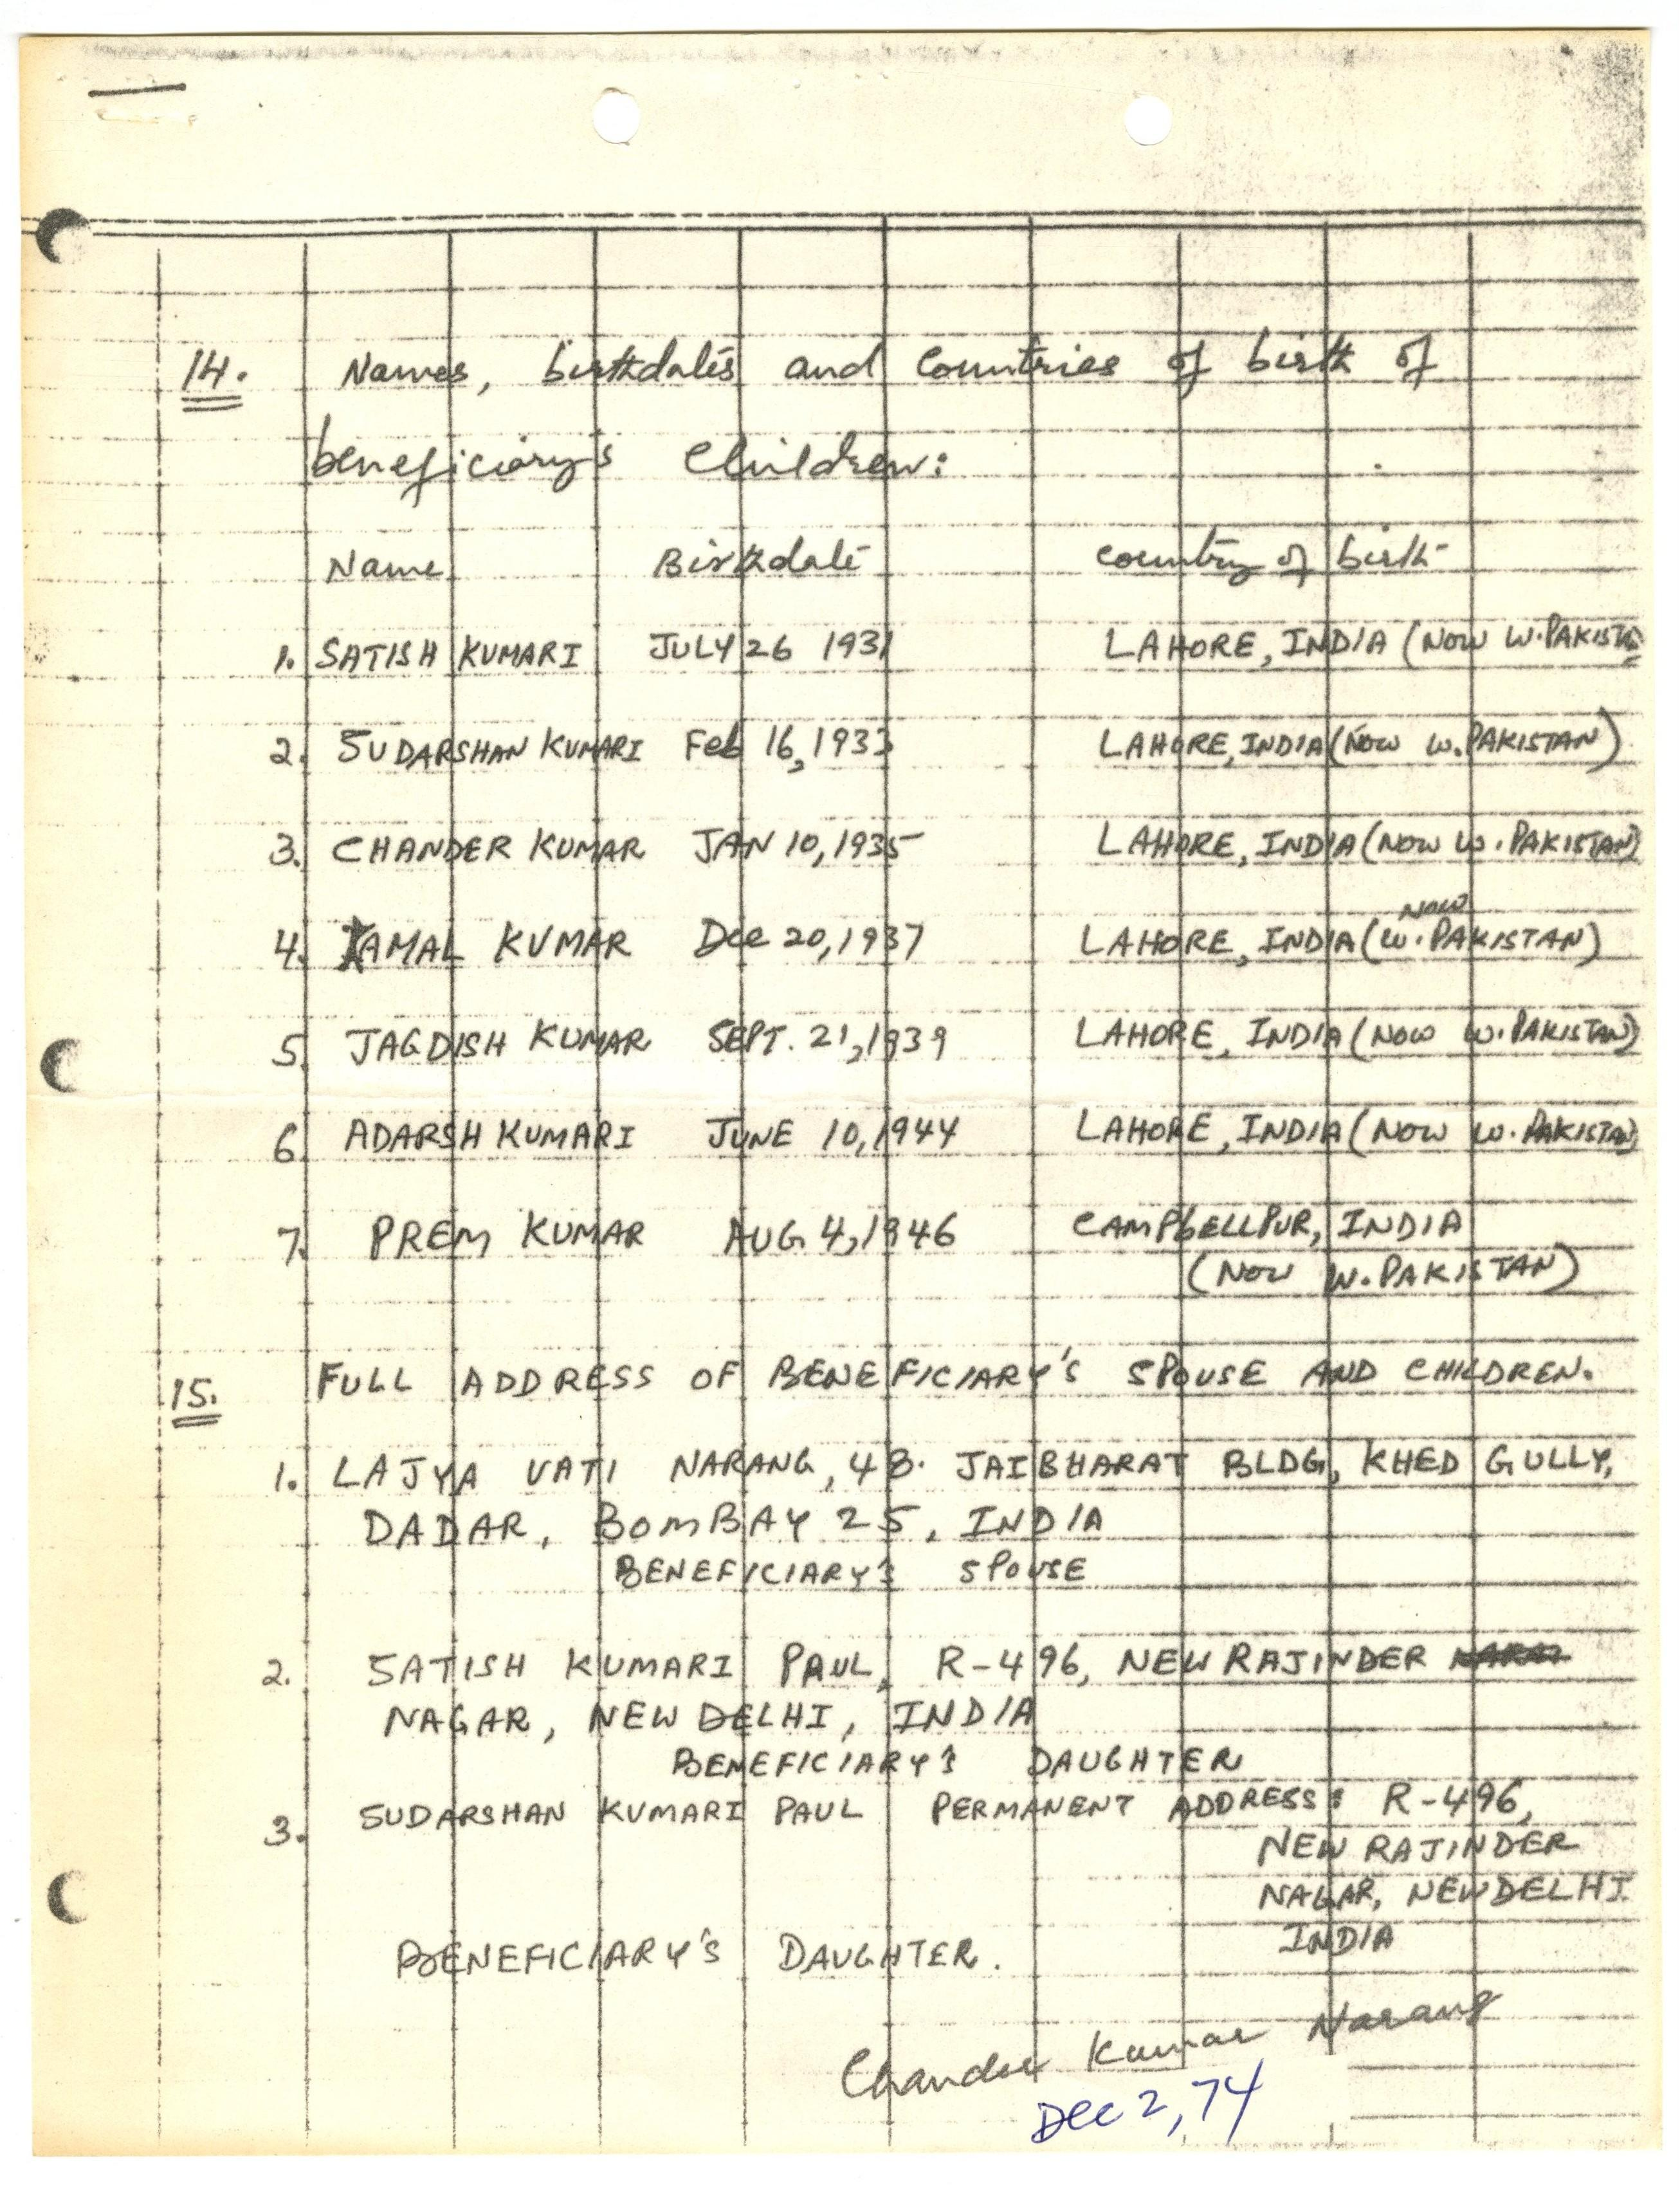 14. Names, birthdates and Countries of birth of
beneficiary's Children:
Name Birthdate Country of birth
1. SATISH KUMARI JULY 26 1931 LAHORE, INDIA (NOW W. PAKISTA
2. SUDARSHAN KUMARI Feb 16, 1933 LAHORE, INDIA (NOW W. PAKISTAN)
3. CHANDER KUMAR JAN 10, 1935 LAHORE, INDIA (NOW W. PAKISTAN)
NOW
4. KAMAL KUMAR Dec 20, 1937 LAHORE, INDIA (W. PAKISTAN)
5. JAGDISH KUMAR SEPT. 21, 1939 LAHORE, INDIA (NOW W. PAKISTAN)
6. ADARSH KUMARI JUNE 10, 1944 LAHORE, INDIA (NOW W. PAKISTAN)
7. PREM KUMAR AUG 4, 1946 CAMPbELLPUR, INDIA
(NOW W. PAKISTAN)
15. FULL ADDRESS OF BENEFICIARY'S SPOUSE AND CHILDREN.
1. LAJYA VATI NARANG, 48. JAIBHARAT BLDG, KHED GULLY,
DADAR, BOMBAY 25, INDIA
BENEFICIARY'S SPOUSE
2. SATISH KUMARI PAUL, R-496, NEW RAJINDER
NAGAR, NEW DELHI, INDIA
BENEFICIARY'S DAUGHTER
3. SUDARSHAN KUMARI PAUL PERMANENT ADDRESS: R-496,
NEW RAJINDER
NAGAR, NEW DELHI
INDIA
BENEFICIARY'S DAUGHTER.
Chander Kumar Narang
Dec 2, 74